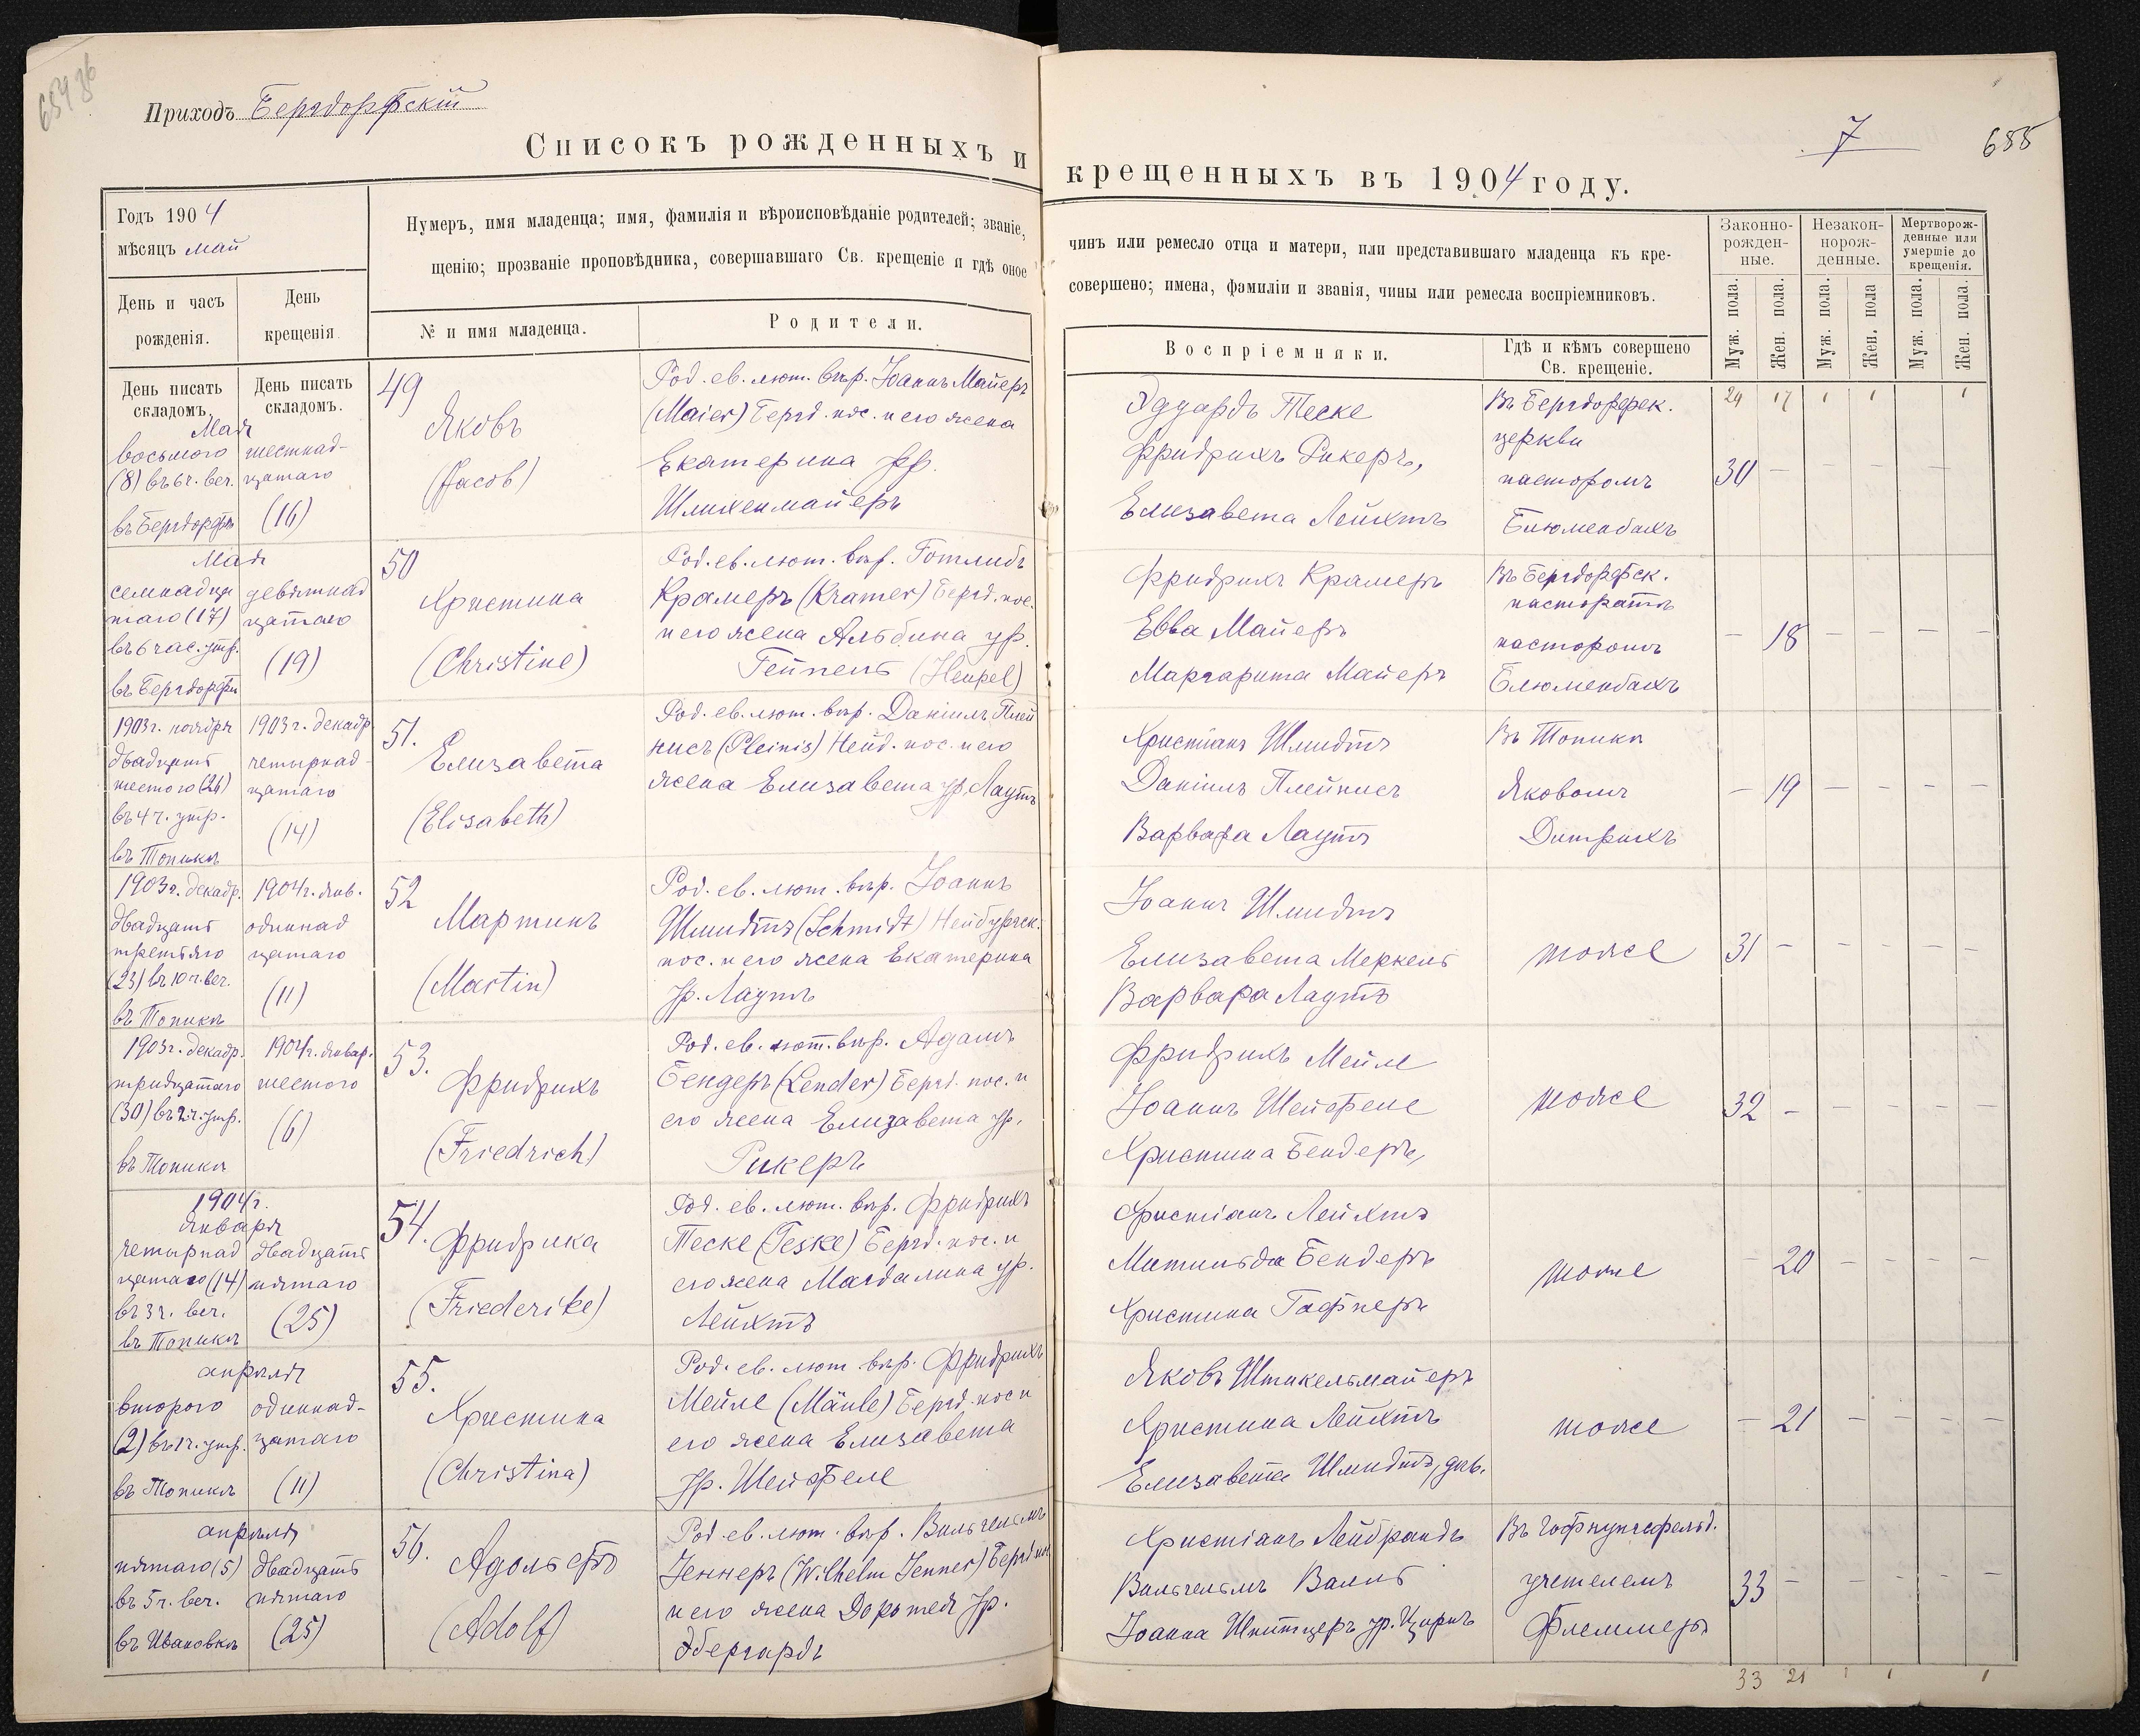 65486
Приходъ Бергдорфскій
Списокъ рожденныхъ и
крещенныхъ въ 1904 году.
7
655
Годъ 1904
мѣсяцъ май
Нумеръ, имя младенца; имя, фамилія и вѣроисповѣданіе родителей; званіе,
щенію; прозваніе проповѣдника, совершавшаго Св. крещеніе и гдѣ оное
чинъ или ремесло отца и матери, или представившаго младенца къ кре-
совершено; имена, фамиліи и званія, чины или ремесла воспріемниковъ.
Законно-
рожден-
ные.
Незакон-
норож-
денные.
Мертворож-
денные или
умершіе до
крещенія.
День и часъ
рожденія.
День
крещенія.
№ и имя младенца.
Родители.
Воспріемники.
Гдѣ и кѣмъ совершено
Св. крещеніе.
Муж. пола.
Жен. пола.
Муж. пола.
Жен. пола
Муж. пола.
Жен. пола.
День писать
складомъ.
День писать
складомъ.
24 17 1 1 1
Мая
восьмого
(8) въ 6 ч. веч.
въ Бергдорфѣ
шестнад-
цатаго
(16)
49
Яковъ
(Jacob)
Род. ев. лют. вѣр. Іоаннъ Майеръ
(Maier) Бергд. пос. и его жена
Екатерина ур.
Шлихенмайеръ
Эдуардъ Теске
Фридрихъ Рикеръ,
Елизавета Лейхтъ
Въ Бергдорфск.
церкви
пасторомъ
Блюменбахъ
30 — — — —
Мая
семнадца
таго (17)
въ 6 час. утр.
въ Бергдорфѣ
девятнад
цатаго
(19)
50
Христина
(Christine)
Род. ев. лют. вѣр. Готлибъ
Крамеръ (Kramer) Бергд. пос.
и его жена Альбина ур.
Гейпель (Heupel)
Фридрихъ Крамеръ
Евва Майеръ
Маргарита Майеръ
Въ Бергдорфск.
пасторатѣ
пасторомъ
Блюменбахъ
— 18 — — — —
1903 г. ноября
двадцать
шестого (26)
въ 4 ч. утр.
въ Топикѣ
1903 г. декабр.
четырнад-
цатаго
(14)
51.
Елизавета
(Elisabeth)
Род. ев. лют. вѣр. Даніилъ Плей
нисъ (Pleinis) Нейд. пос. и его
жена Елизавета ур. Лаутъ
Христіанъ Шмидтъ
Даніилъ Плейнисъ
Варвара Лаутъ
Въ Топикѣ
Яковомъ
Дитрихъ
— 19 — — — —
1903 г. декабр.
двадцать
третьяго
(23) въ 10 ч. веч.
въ Топикѣ
1904 г. янв.
одиннад
цатаго
(11)
52
Мартинъ
(Martin)
Род. ев. лют. вѣр. Іоаннъ
Шмидтъ (Schmidt) Нейбургск.
пос. и его жена Екатерина
ур. Лаутъ
Іоаннъ Шмидтъ
Елизавета Меркель
Варвара Лаутъ
тоже
31 — — — — —
1903 г. декабр.
тридцатаго
(30) въ 2 ч. утр.
въ Топикѣ
1904 г. январ.
шестого
(6)
53.
Фридрихъ
(Friedrich)
Род. ев. лют. вѣр. Адамъ
Бендеръ (Bender) Бергд. пос. и
его жена Елизавета ур.
Рикеръ
Фридрихъ Мейле
Іоаннъ Шейфеле
Христина Бендеръ,
тоже
32 — — — — —
1904 г.
Января
четырнад
цатаго (14)
въ 3 ч. веч.
въ Топикѣ
двадцать
пятаго
(25)
54.
Фридрика
(Friederike)
Род. ев. лют. вѣр. Фридрихъ
Теске (Teske) Бергд. пос. и
его жена Магдалина ур.
Лейхтъ
Христіанъ Лейхтъ
Матильда Бендеръ
Христина Гафнеръ
тоже
— 20 — — — —
апрѣля
второго
(2) въ 1 ч. утр.
въ Топикѣ
одиннад-
цатаго
(11)
55.
Христина
(Christina)
Род. ев. лют. вѣр. Фридрихъ
Мейле (Mäule) Бергд. пос и
его жена Елизавета
ур. Шейфеле
Яковъ Штикельмайеръ
Христина Лейхтъ
Елизавета Шмидтъ, дѣв.
тоже
— 21 — — — —
апрѣля
пятаго (5)
въ 5 ч. веч.
въ Ивановкѣ
двадцать
пятаго
(25)
56.
Адольфъ
(Adolf)
Род. ев. лют. вѣр. Вильгельмъ
Іеннеръ (Wilhelm Jenner) Бергд. пос
и его жена Доротея ур.
Эбергардъ
Христіанъ Лейбрандъ
Вильгельмъ Валит
Іоанна Шнитцеръ ур. Цирнъ
Въ Гофнунгсфельд.
учителемъ
Флеммеръ
33 — — — — —
33 21 1 1 1